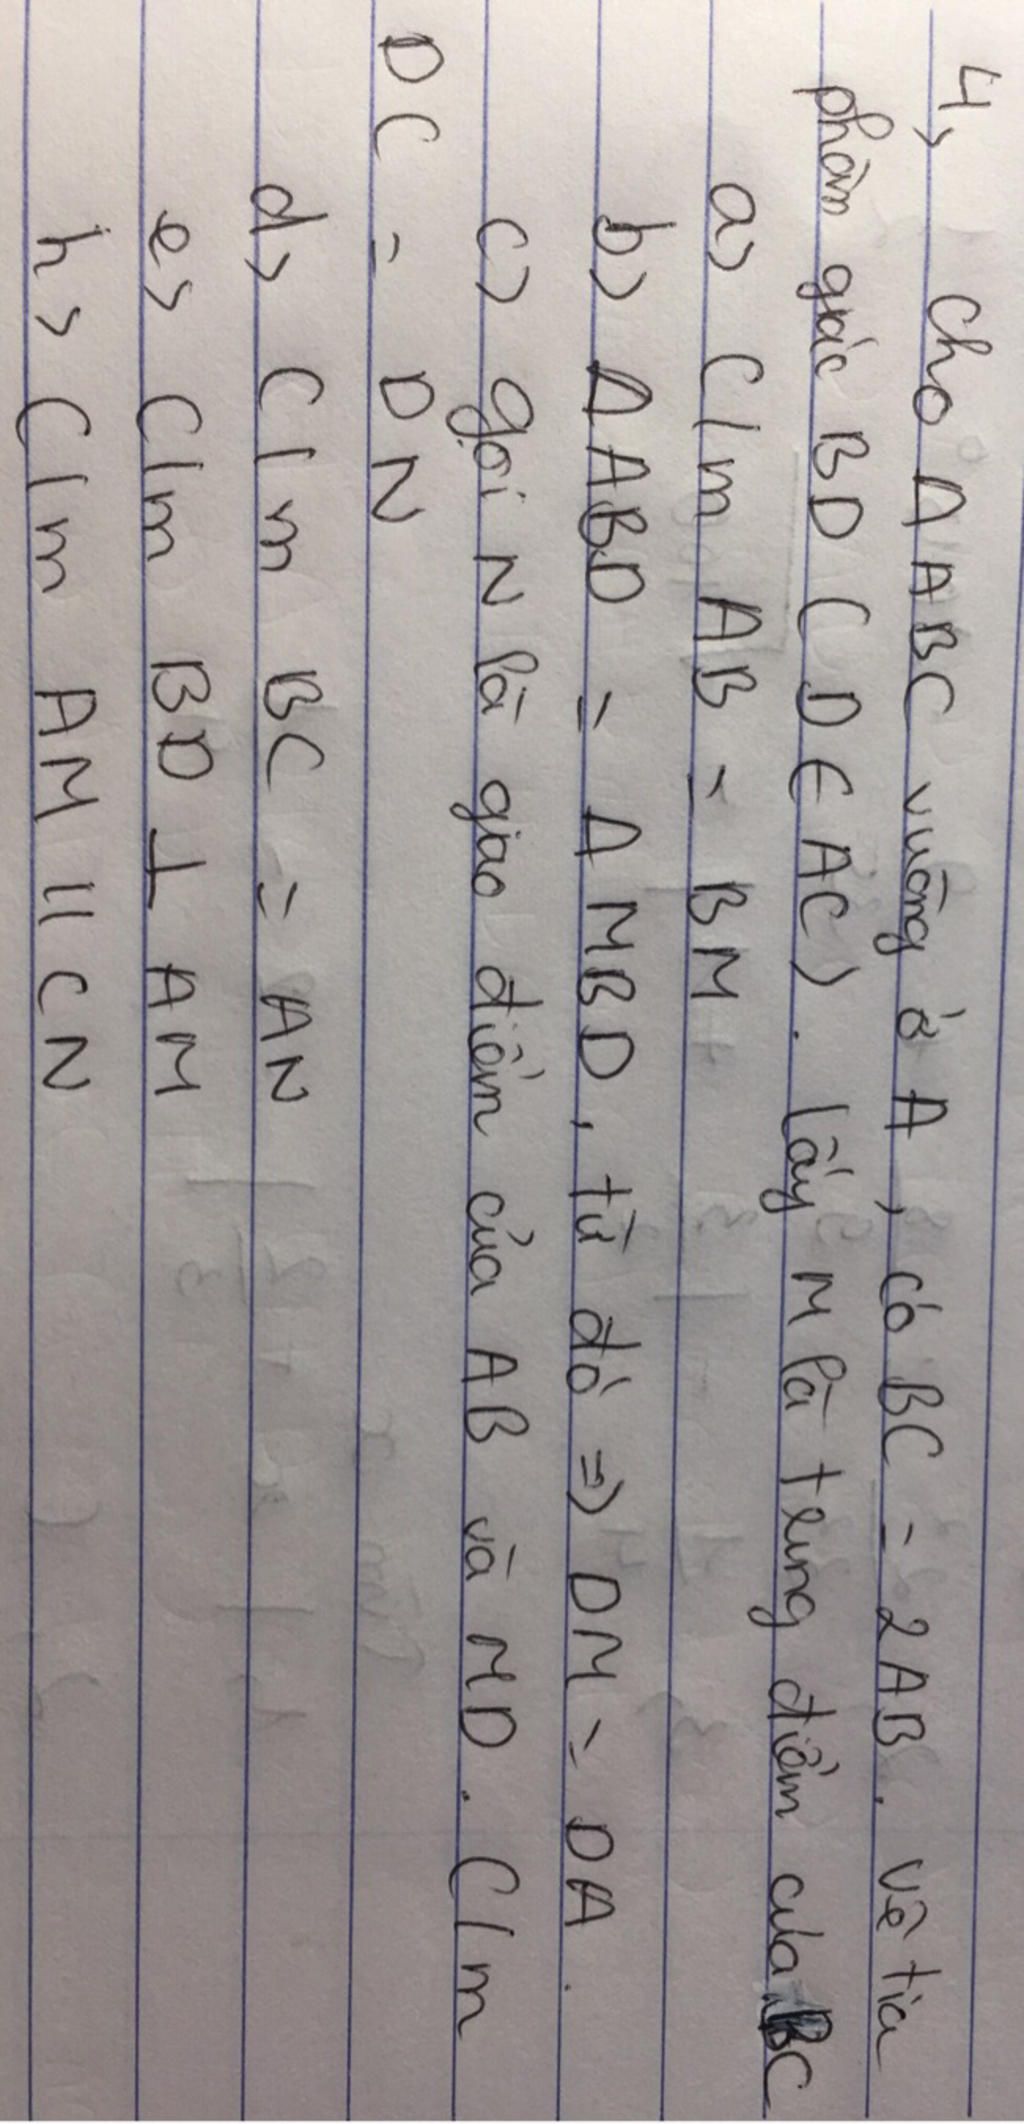 4> Cho Δ ABC vuông ở A, có BC = 2AB. Vẽ tia
phân giác BD (D ∈ AC). Lấy M là trung điểm của BC
a> C/m AB = BM
b> Δ ABD = Δ MBD, từ đó => DM = DA.
c> gọi N là giao điểm của AB và MD. C/m
DC = DN
d> C/m BC = AN
e> C/m BD ⊥ AM
h> C/m AM || CN